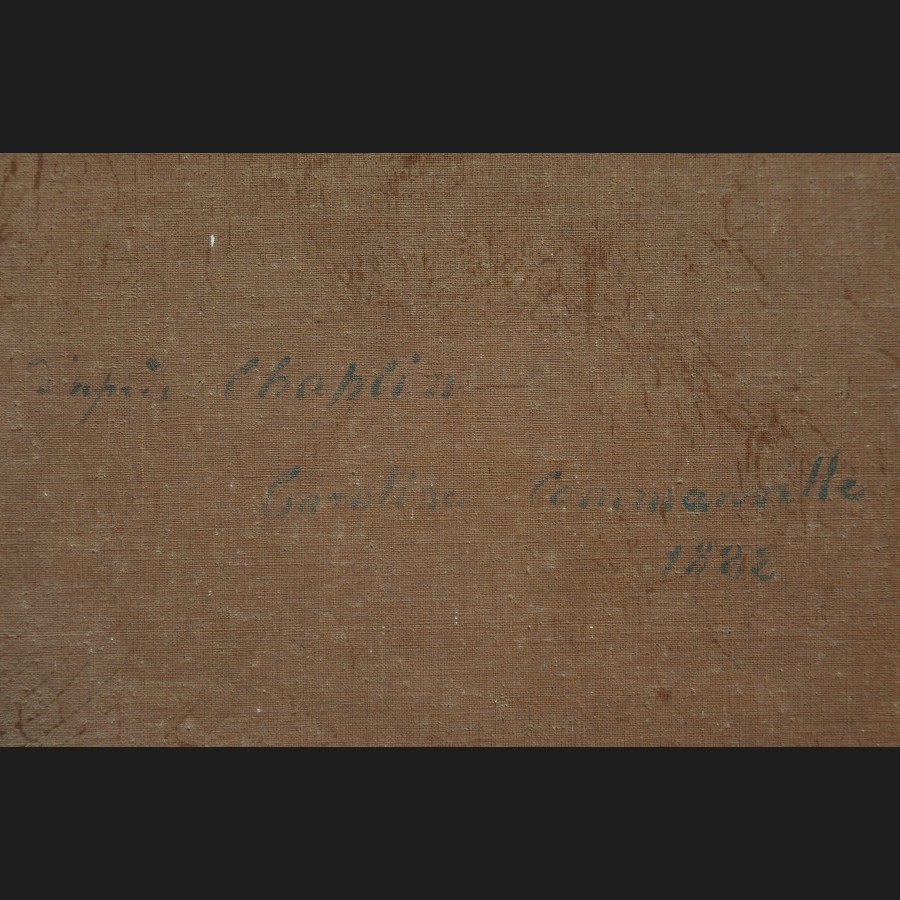 D'après Chaplin
Caroline Commanville
1882